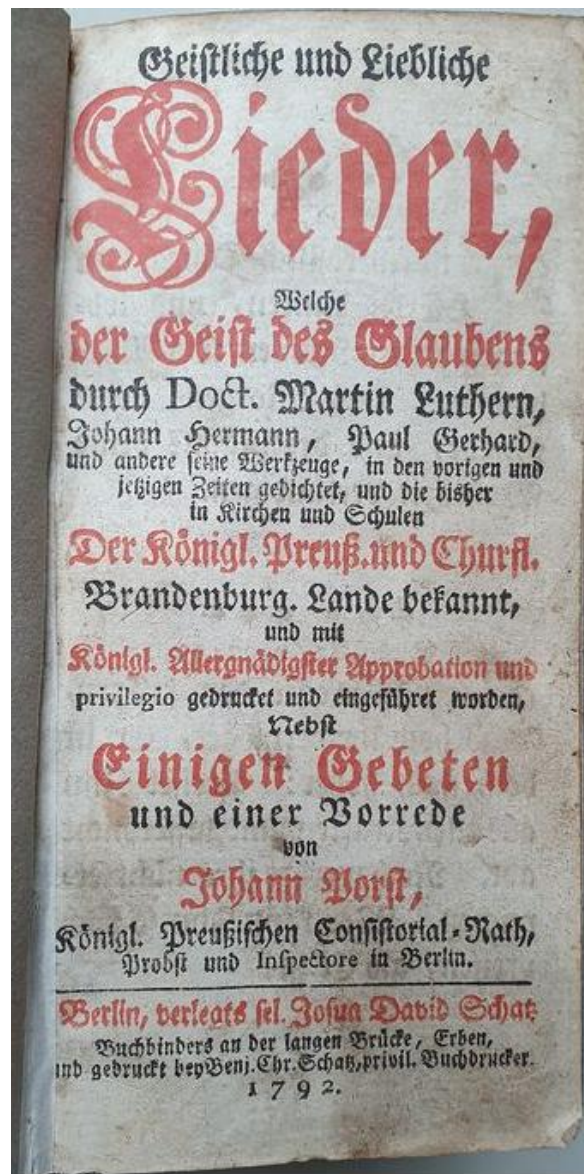 Geistliche und Liebliche
Lieder,
Welche
der Geist des Glaubens
durch Doct. Martin Luthern,
Johann Hermann, Paul Gerhard,
und andere seine Werkzeuge, in den vorigen und
jetzigen Zeiten gedichtet, und die bisher
in Kirchen und Schulen
Der Königl. Preuß. und Churfl.
Brandenburg. Lande bekannt,
und mit
Königl. Allergnädigster Approbation und
privilegio gedrucket und eingeführet worden,
Nebst
Einigen Gebeten
und einer Vorrede
von
Johann Porst,
Königl. Preußischen Consistorial-Rath,
Probst und Inspectore in Berlin.
Berlin, verlegts sel. Josua David Schatz
Buchbinders an der langen Brücke, Erben,
und gedruckt bey Benj. Chr. Schatz, privil. Buchdrucker.
1792.